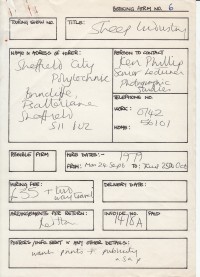 BOOKING FORM No. 6
TOURING SHOW NO.
TITLE:
Sheep Industry
NAME & ADDRESS OF HIRER:
Sheffield City
Polytechnic
Brincliffe
Psalter Lane
Sheffield
S11 8UZ
PERSON TO CONTACT
Ken Phillip
Senior Lecturer
Photographic
Studies
TELEPHONE NO.
WORK: 0742
56101
HOME:
FIRM
HIRE DATES:- 1979
FROM: Mon 24 Sept TO:
25th Oct
HIRING FEE:
£35 + two
way
DELIVERY DATE:
ARRANGEMENTS FOR RETURN:
INVOICE NO. PAID
POSTERS/INFO SENT & ANY OTHER DETAILS:
want prints + publicity
asap